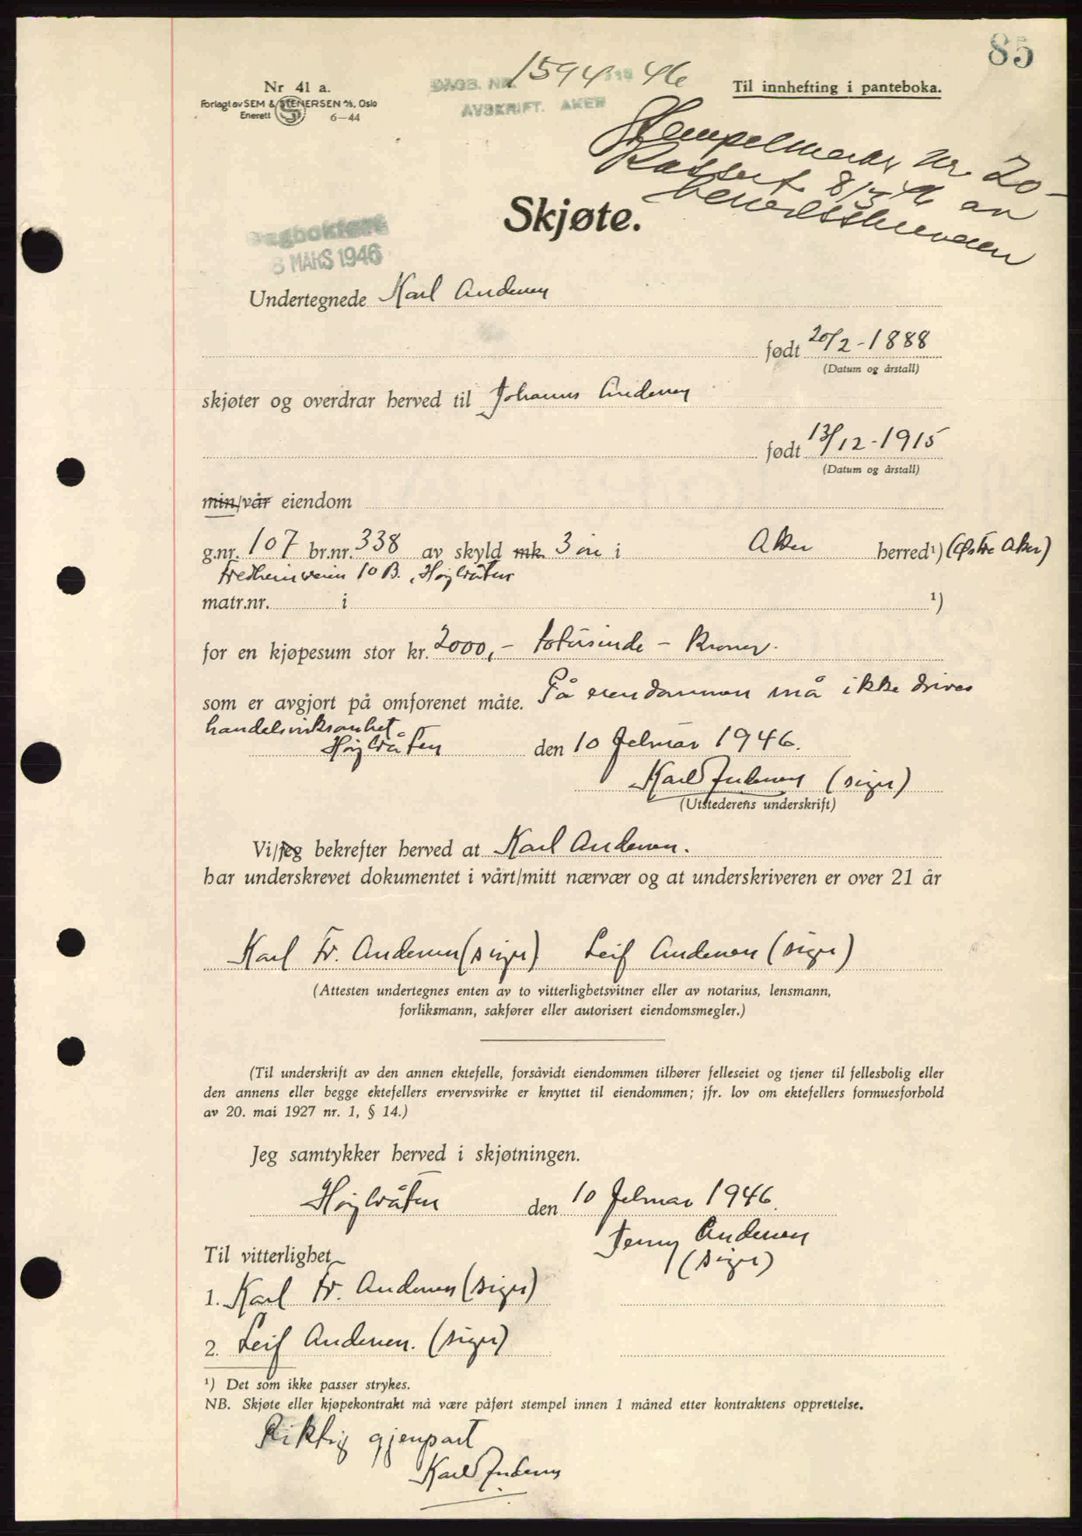 85
Nr 41 a.
Forlagt av SEM & STENERSEN A/S, Oslo
Enerett 6-44
DAGB. NR. 1594 1946
AVSKRIFT. AKER
Til innhefting i panteboka.
Stempelmerke Nr 20-
Kassert 8/3 46 av
Dagbokført
8 MARS 1946
Skjøte.
Undertegnede Karl Andersen
født 20/2-1888
(Datum og årstall)
skjøter og overdrar herved til Johannes Andersen
født 13/12-1915
(Datum og årstall)
min/vår eiendom
g.nr. 107 br.nr. 338 av skyld mk. 3 øre i Aker herred¹) (Østre Aker)
Fredheimveien 10 B. Høybråten
matr.nr. i ¹)
for en kjøpesum stor kr. 2000,- totusinde - Kroner.
som er avgjort på omforenet måte. På eiendommen må ikke drives
handelsvirksomhet.
Høybråten den 10 februar 1946.
Karl Andersen (sign)
(Utstederens underskrift)
Vi/jeg bekrefter herved at Karl Andersen.
har underskrevet dokumentet i vårt/mitt nærvær og at underskriveren er over 21 år
Karl Fr. Andersen (sign) Leif Andersen (sign)
(Attesten undertegnes enten av to vitterlighetsvitner eller av notarius, lensmann,
forliksmann, sakfører eller autorisert eiendomsmegler.)
(Til underskrift av den annen ektefelle, forsåvidt eiendommen tilhører felleseiet og tjener til fellesbolig eller
den annens eller begge ektefellers ervervsvirke er knyttet til eiendommen; jfr. lov om ektefellers formuesforhold
av 20. mai 1927 nr. 1, § 14.)
Jeg samtykker herved i skjøtningen.
Høybråten den 10 februar 1946.
Jenny Andersen
(sign)
Til vitterlighet
1. Karl Fr. Andersen (sign)
2. Leif Andersen. (sign)
¹) Det som ikke passer strykes.
NB. Skjøte eller kjøpekontrakt må være påført stempel innen 1 måned etter kontraktens opprettelse.
Riktig gjenpart
Karl Andersen